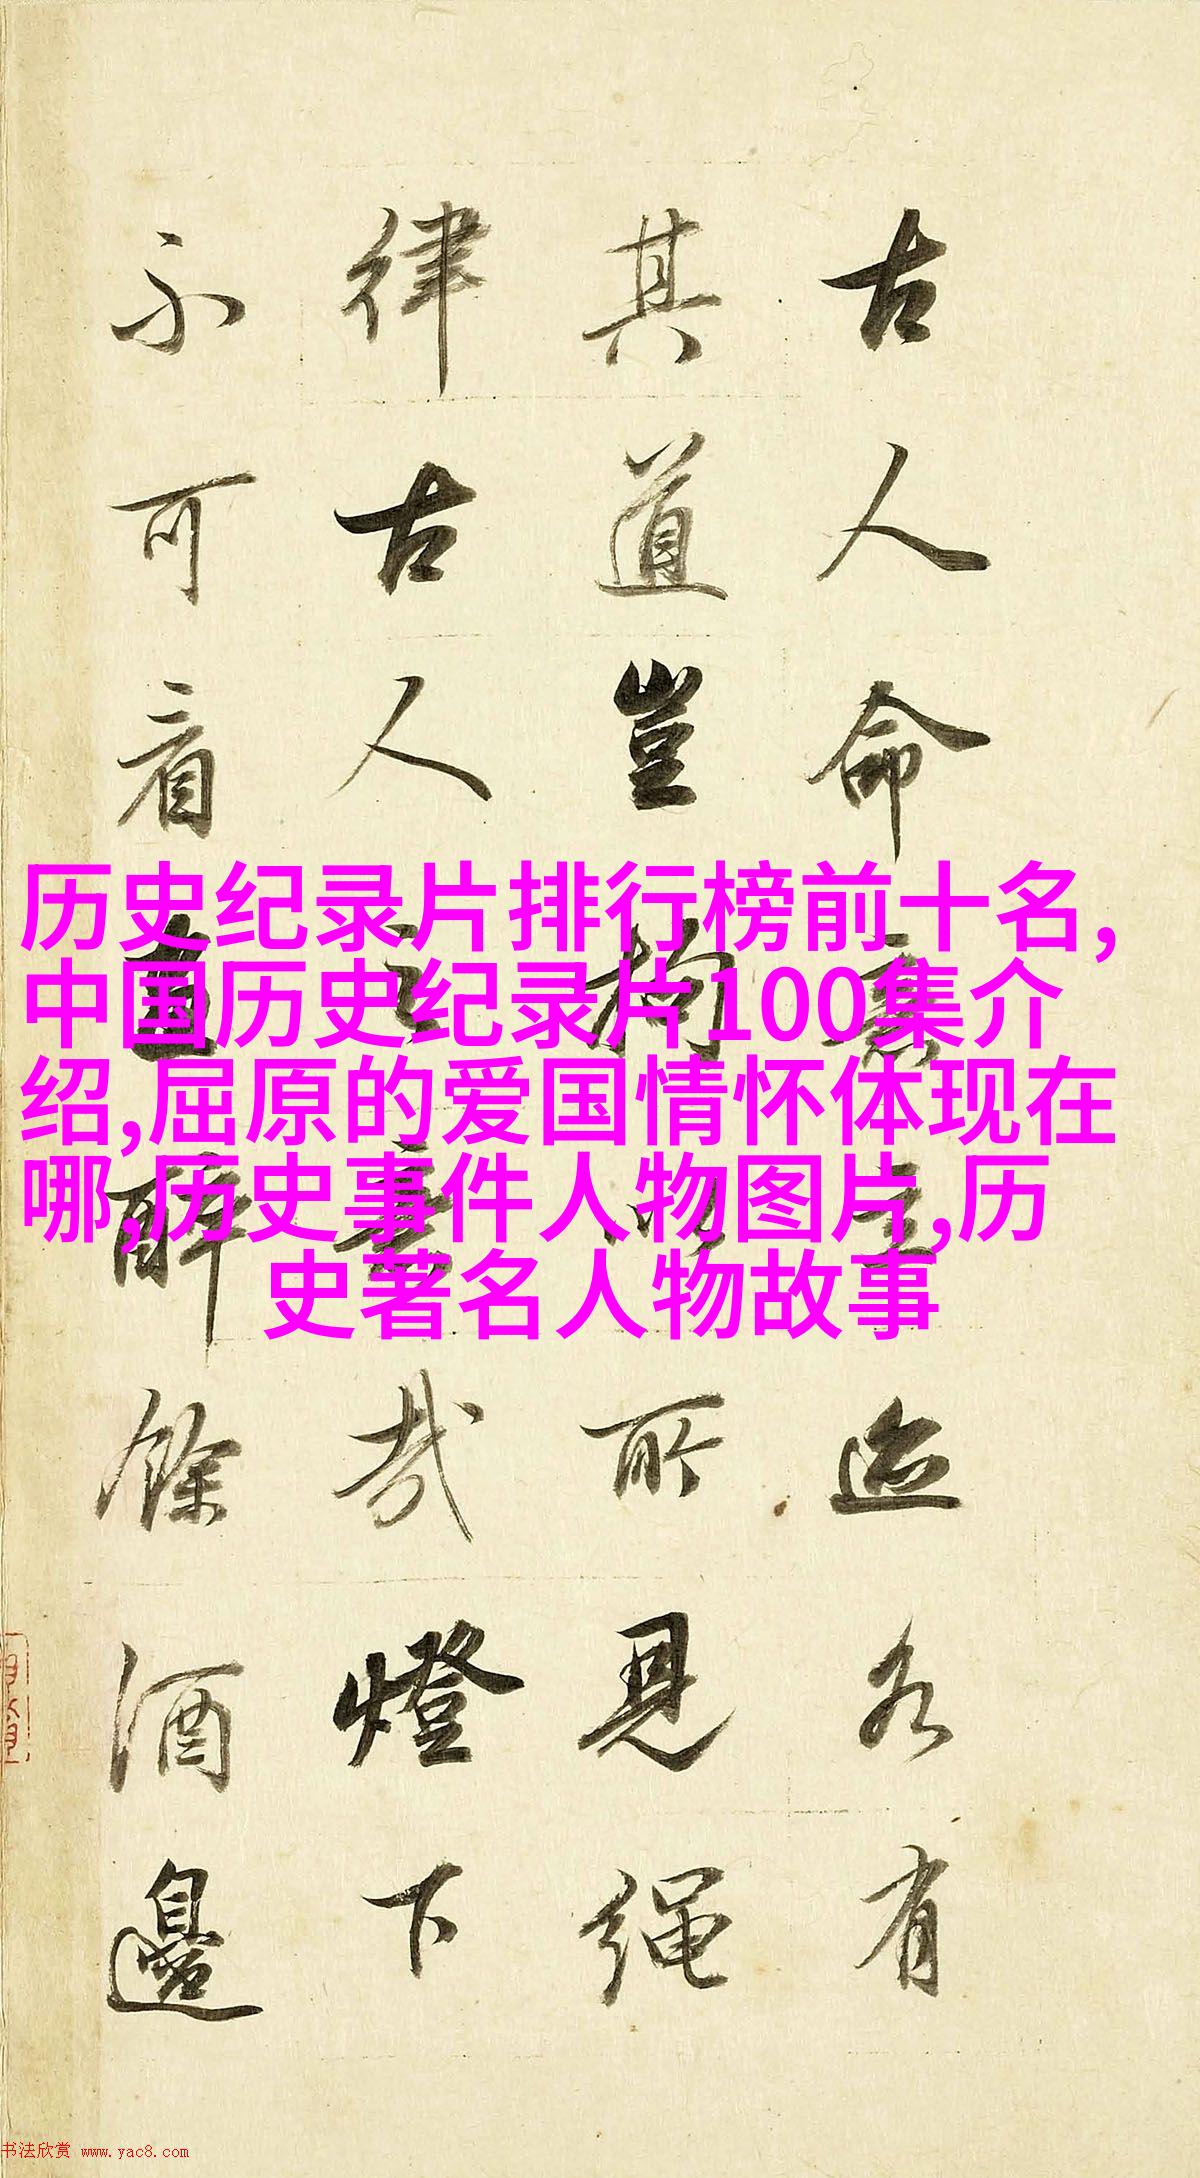 历史纪录片排行榜前十名,
中国历史纪录片100集介
绍,屈原的爱国情怀体现在
哪,历史事件人物图片,历
史著名人物故事
古人命意立迹各有
其道豈拘以所見繩
律古人之意哉燈下
不可看畫醉餘酒邊
书法欣赏 www.yac8.com